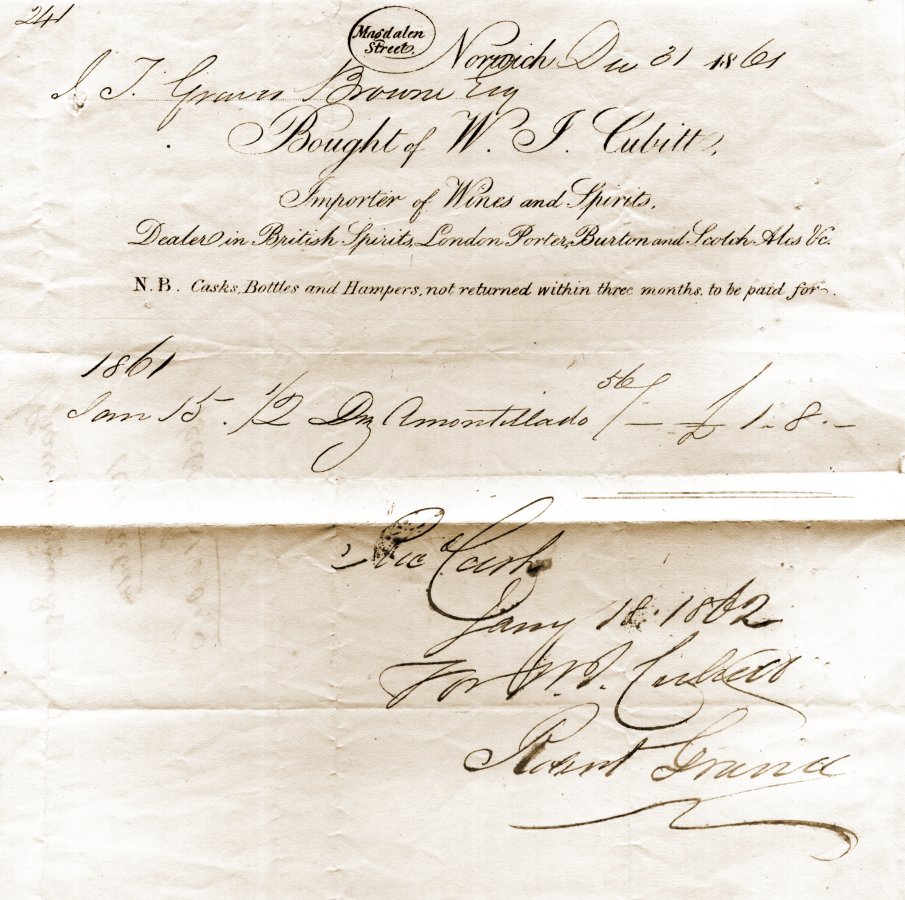 241
Magdalen
Street.
Norwich Dec 31 1861
J. T. Graver Browne Esq
Bought of W. J. Cubitt,
Importer of Wines and Spirits,
Dealer in British Spirits, London Porter, Burton and Scotch Ales &c.
N.B. Casks, Bottles and Hampers, not returned within three months, to be paid for.
1861
Jan 15. 1/2 Doz Amontillado 56/- £1.8.-
Rec Cash
Jany 18. 1862
For W. J. Cubitt
Robert